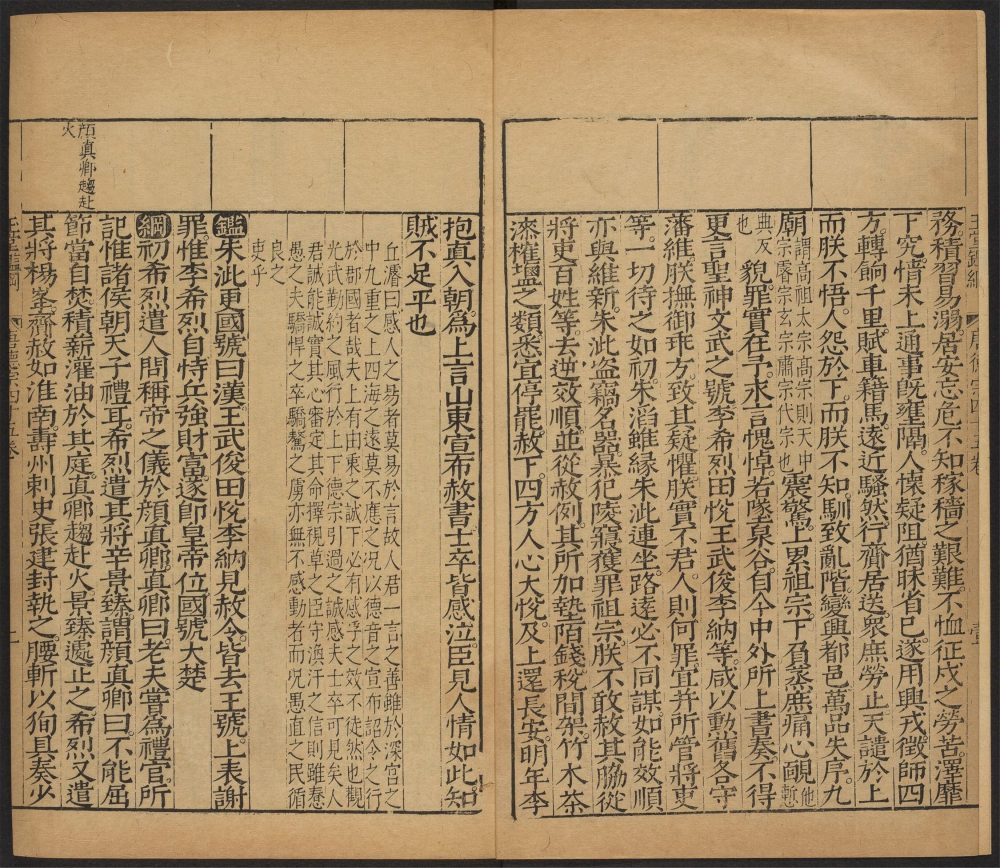 務積習易溺居安忘危不知稼穡之艱難不恤征戍之勞苦澤靡
下究情未上通事旣雍隔人懷疑阻猶昧省己遂用興戎徵師四
方轉餉千里賦車籍馬遠近騷然行齎居送衆庶勞止天譴於上
而朕不悟人怨於下而朕不知馴致亂階變興都邑萬品失序九
廟謂高祖太宗高宗則天中宗睿宗玄宗肅宗代宗也震驚上累祖宗下負蒸庶痛心靦他典反慙
也貌罪實在予永言愧悼若墜泉谷自今中外所上書奏不得
更言聖神文武之號李希烈田悅王武俊李納等咸以勳舊各守
藩維朕撫御乖方致其疑懼朕實不君人則何罪宜并所管將吏
等一切待之如初朱滔雖緣朱泚連坐路遠必不同謀如能效順
亦與維新朱泚盜竊名器暴犯陵寢獲罪祖宗朕不敢赦其脇從
將吏百姓等去逆效順並從赦例其所加墊陌錢稅間架竹木茶
漆榷塩之類悉宜停罷赦下四方人心大悅及上還長安明年李
抱真入朝為上言山東宣布赦書士卒皆感泣臣見人情如此知
賊不足平也
丘濬曰感人之易者莫易於言故人君一言之善雖於深宮之
中九重之上四海之遠莫不應之况以德音之宣布詔令之行
於郡國者哉夫上有由衷之誠下必有感孚之效不徒然也觀
光武勅約之風行於上下德宗引過之誠感夫士卒可見矣人
君誠能誠實其心審定其命擇視草之臣守渙汗之信則雖惷
愚之夫驕悍之卒驕驁之虜亦無不感動者而况愚直之民循
良之
吏乎
鑑朱泚更國號曰漢王武俊田悅李納見赦令皆去王號上表謝
罪惟李希烈自恃兵強財富遂即皇帝位國號大楚
綱初希烈遣人問稱帝之儀於顏真卿真卿曰老夫嘗為禮官所
記惟諸侯朝天子禮耳希烈遣其將辛景臻謂顏真卿曰不能屈
節當自焚積薪灌油於其庭真卿趨赴火景臻遽止之希烈又遣
其將楊峯齎赦如淮南壽州刺史張建封執之腰斬以徇具奏少
顏真卿趨赴
火